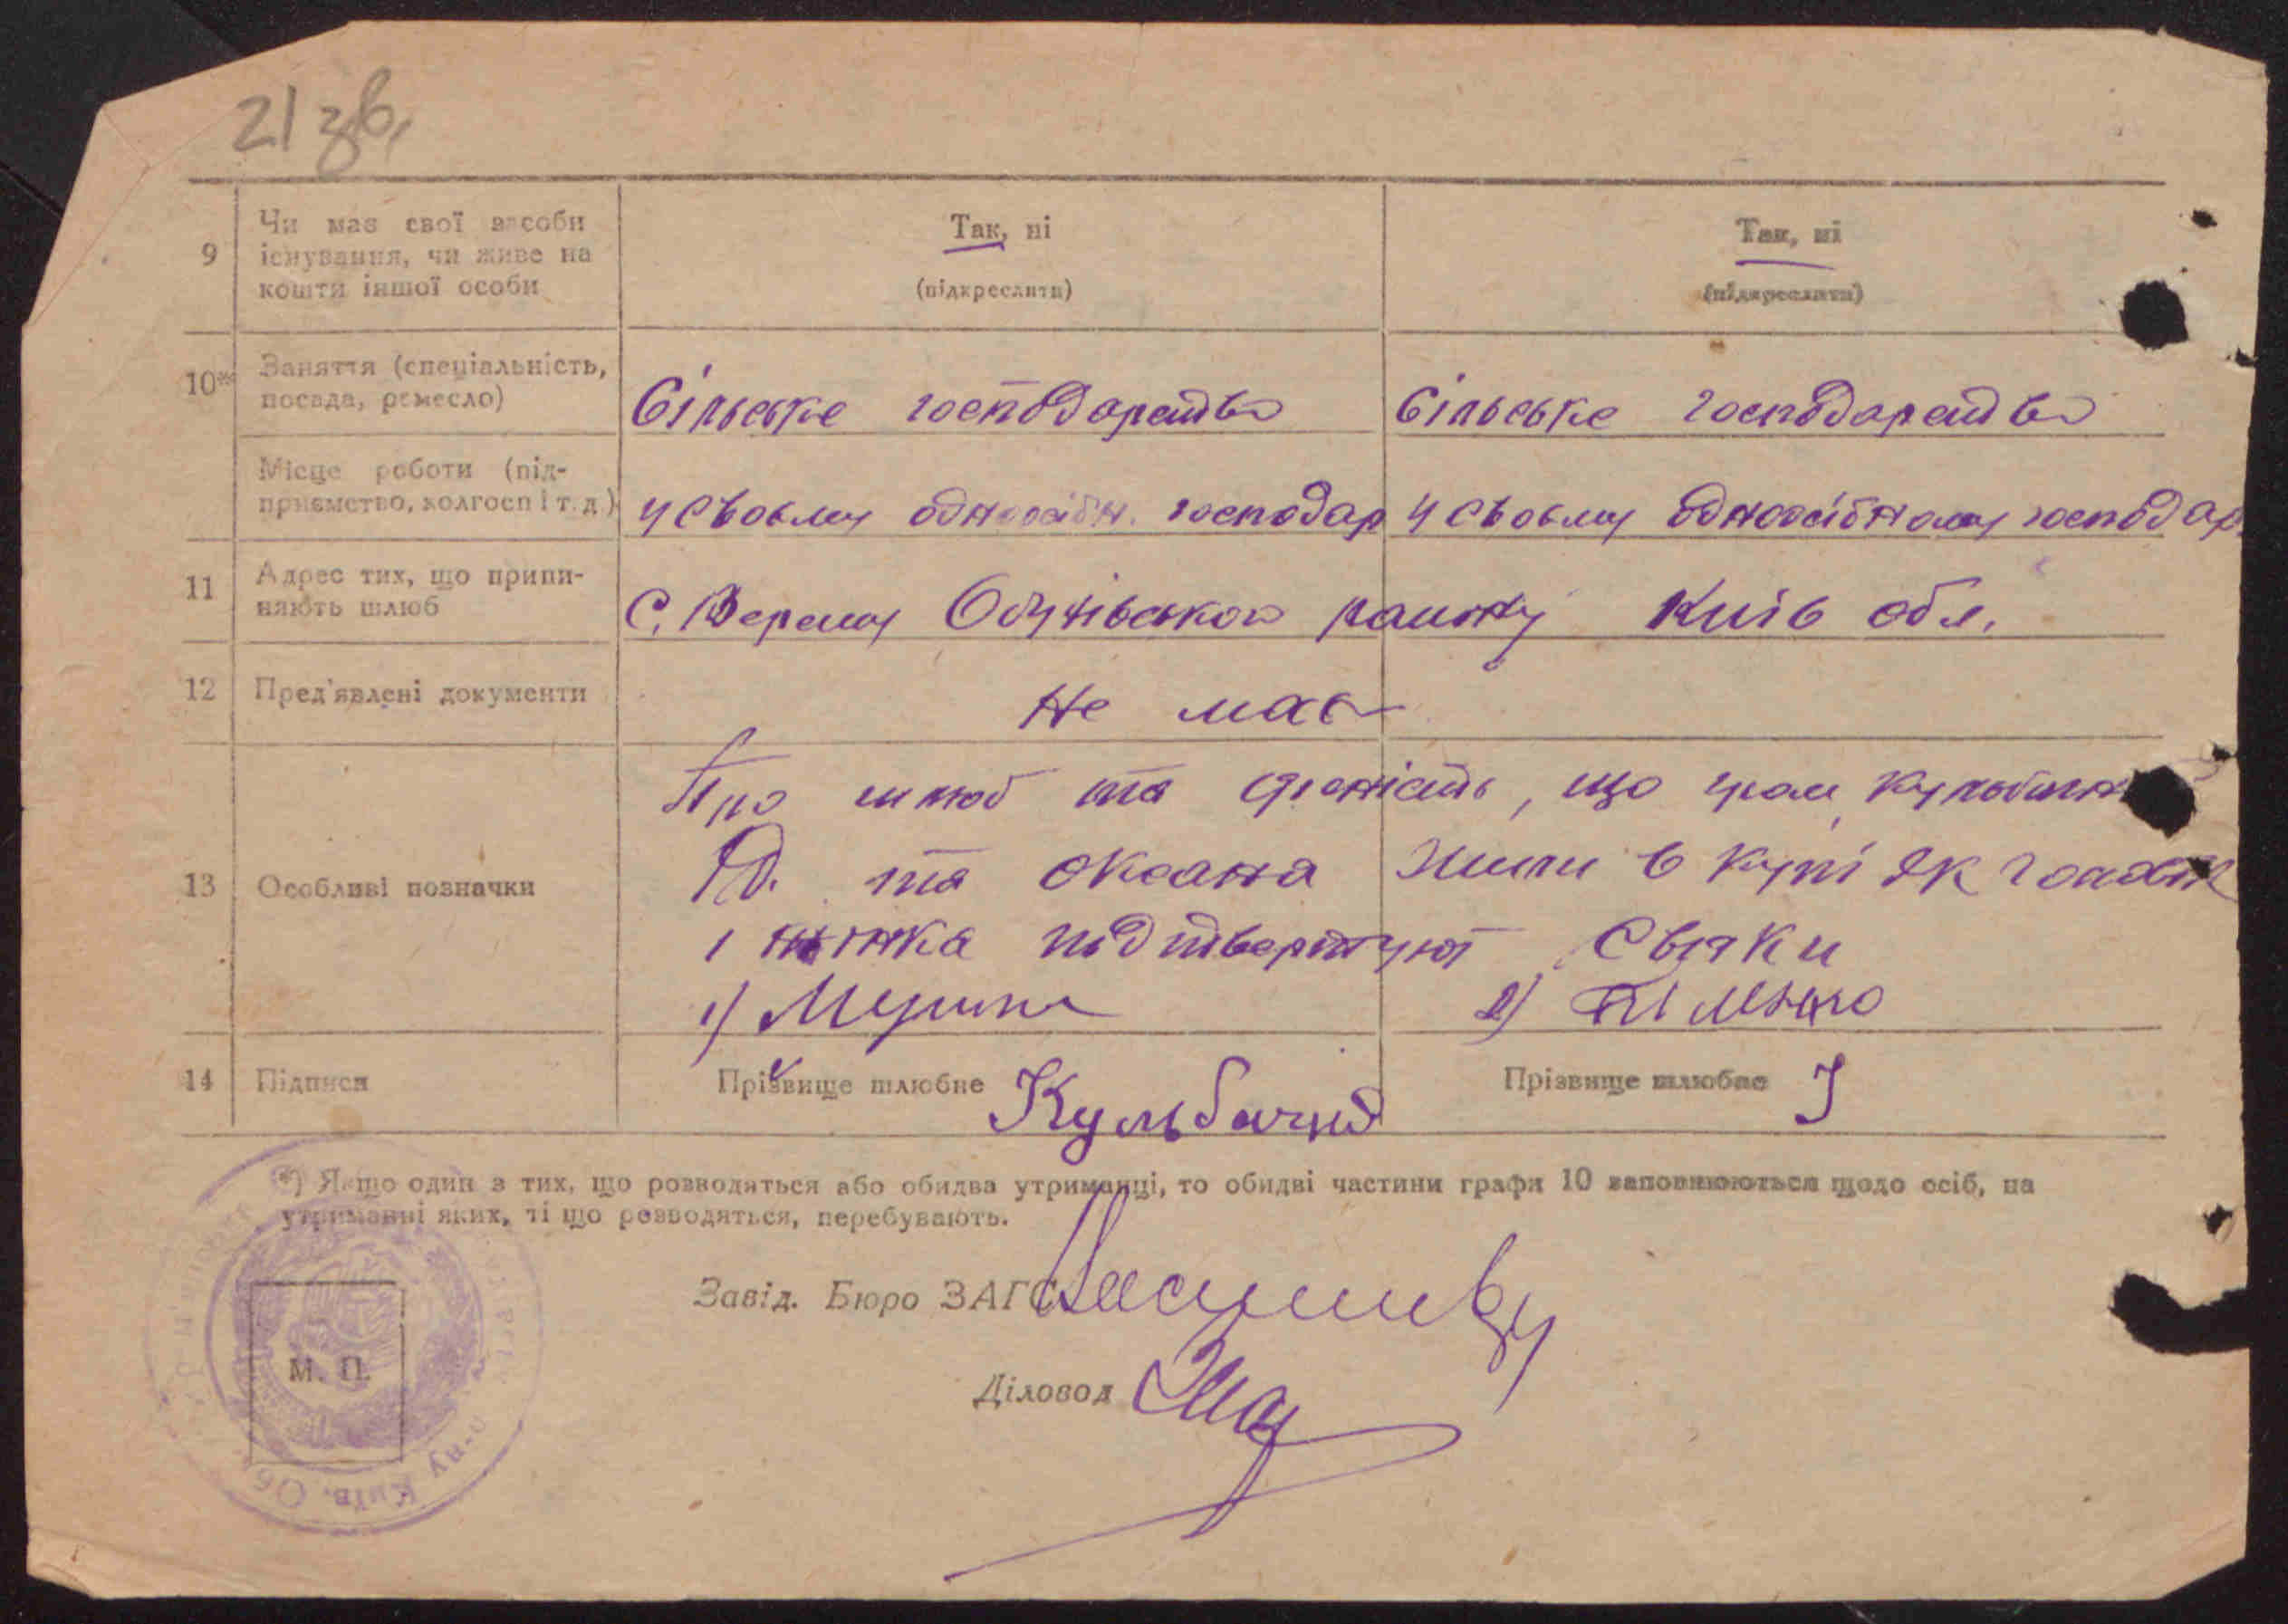 21 зв.
9
Чи має свої засоби
існування, чи живе на
кошти іншої особи
Так, ні
(підкреслити)
Так, ні
(підкреслити)
10*
Заняття (спеціальність,
посада, ремесло)
Сільське господарство
Сільське господарство
Місце роботи (під-
приємство, колгосп і т. д.)
У своєму одноосібн. господар
У своєму одноосібному господар.
11
Адрес тих, що припи-
няють шлюб
С. Веремя Обухівського району Київ обл.
12
Пред'явлені документи
Не має
13
Особливі позначки
Про шлюб та що гром
та Оксана жили в купі як
і жінка свідки
1)
2)
14
Підписи
Прізвище шлюбне Кульбачний
Прізвище шлюбне
*) Якщо один з тих, що розводяться або обидва утриманці, то обидві частини графи 10 заповнюються щодо осіб, на
утриманні яких, ті що розводяться, перебувають.
Завід. Бюро ЗАГС
Діловод
М. П.
Київ. Об